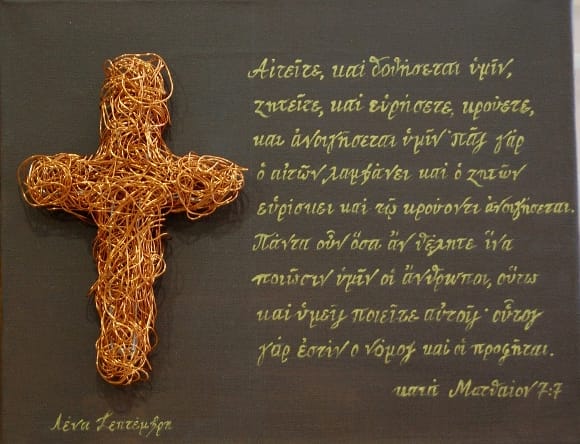 Αἰτεῖτε, καὶ δοθήσεται ὑμῖν,
ζητεῖτε, καὶ εὑρήσετε, κρούετε,
και ἀνοιγήσεται ὑμῖν πᾶς γάρ
ὁ αἰτῶν λαμβάνει καὶ ὁ ζητῶν
εὑρίσκει καὶ τῷ κρούοντι ἀνοιγήσεται.
Πάντα οὖν ὅσα ἄν θέλητε ἵνα
ποιῶσιν ὑμῖν οἱ ἄνθρωποι, οὕτω
καὶ ὑμεῖς ποιεῖτε αὐτοῖς· οὗτος
γάρ ἐστὶν ο νόμος καὶ οἱ προφῆται.
κατά Ματθαίον 7:7
Λένα Σεπτέμβρη